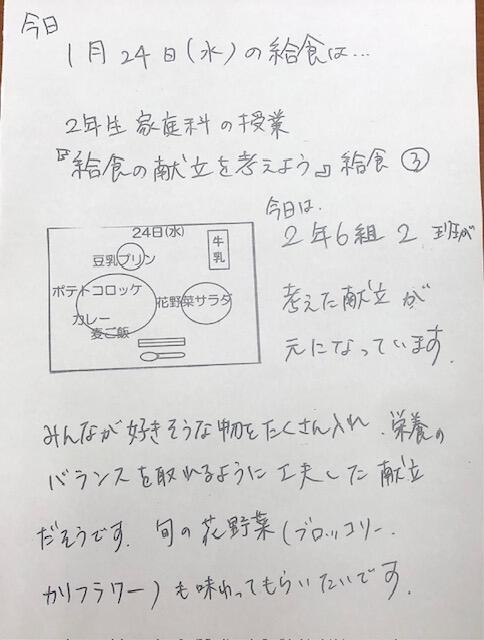 今日
1月24日(水)の給食は…
2年生 家庭科の授業
『給食の献立を考えよう』給食③
今日は、
2年6組2班が
考えた献立が
元になっています。
24日(水)
牛乳
豆乳プリン
ポテトコロッケ
花野菜サラダ
カレー
麦ご飯
みんなが好きそうな物をたくさん入れ、栄養の
バランスを取れるように工夫した献立
だそうです。旬の花野菜(ブロッコリー、
カリフラワー)も味わってもらいたいです。